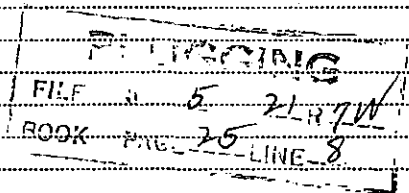 PLUGGING
FILE 5 21 R 7W
BOOK PAGE 25 LINE 8